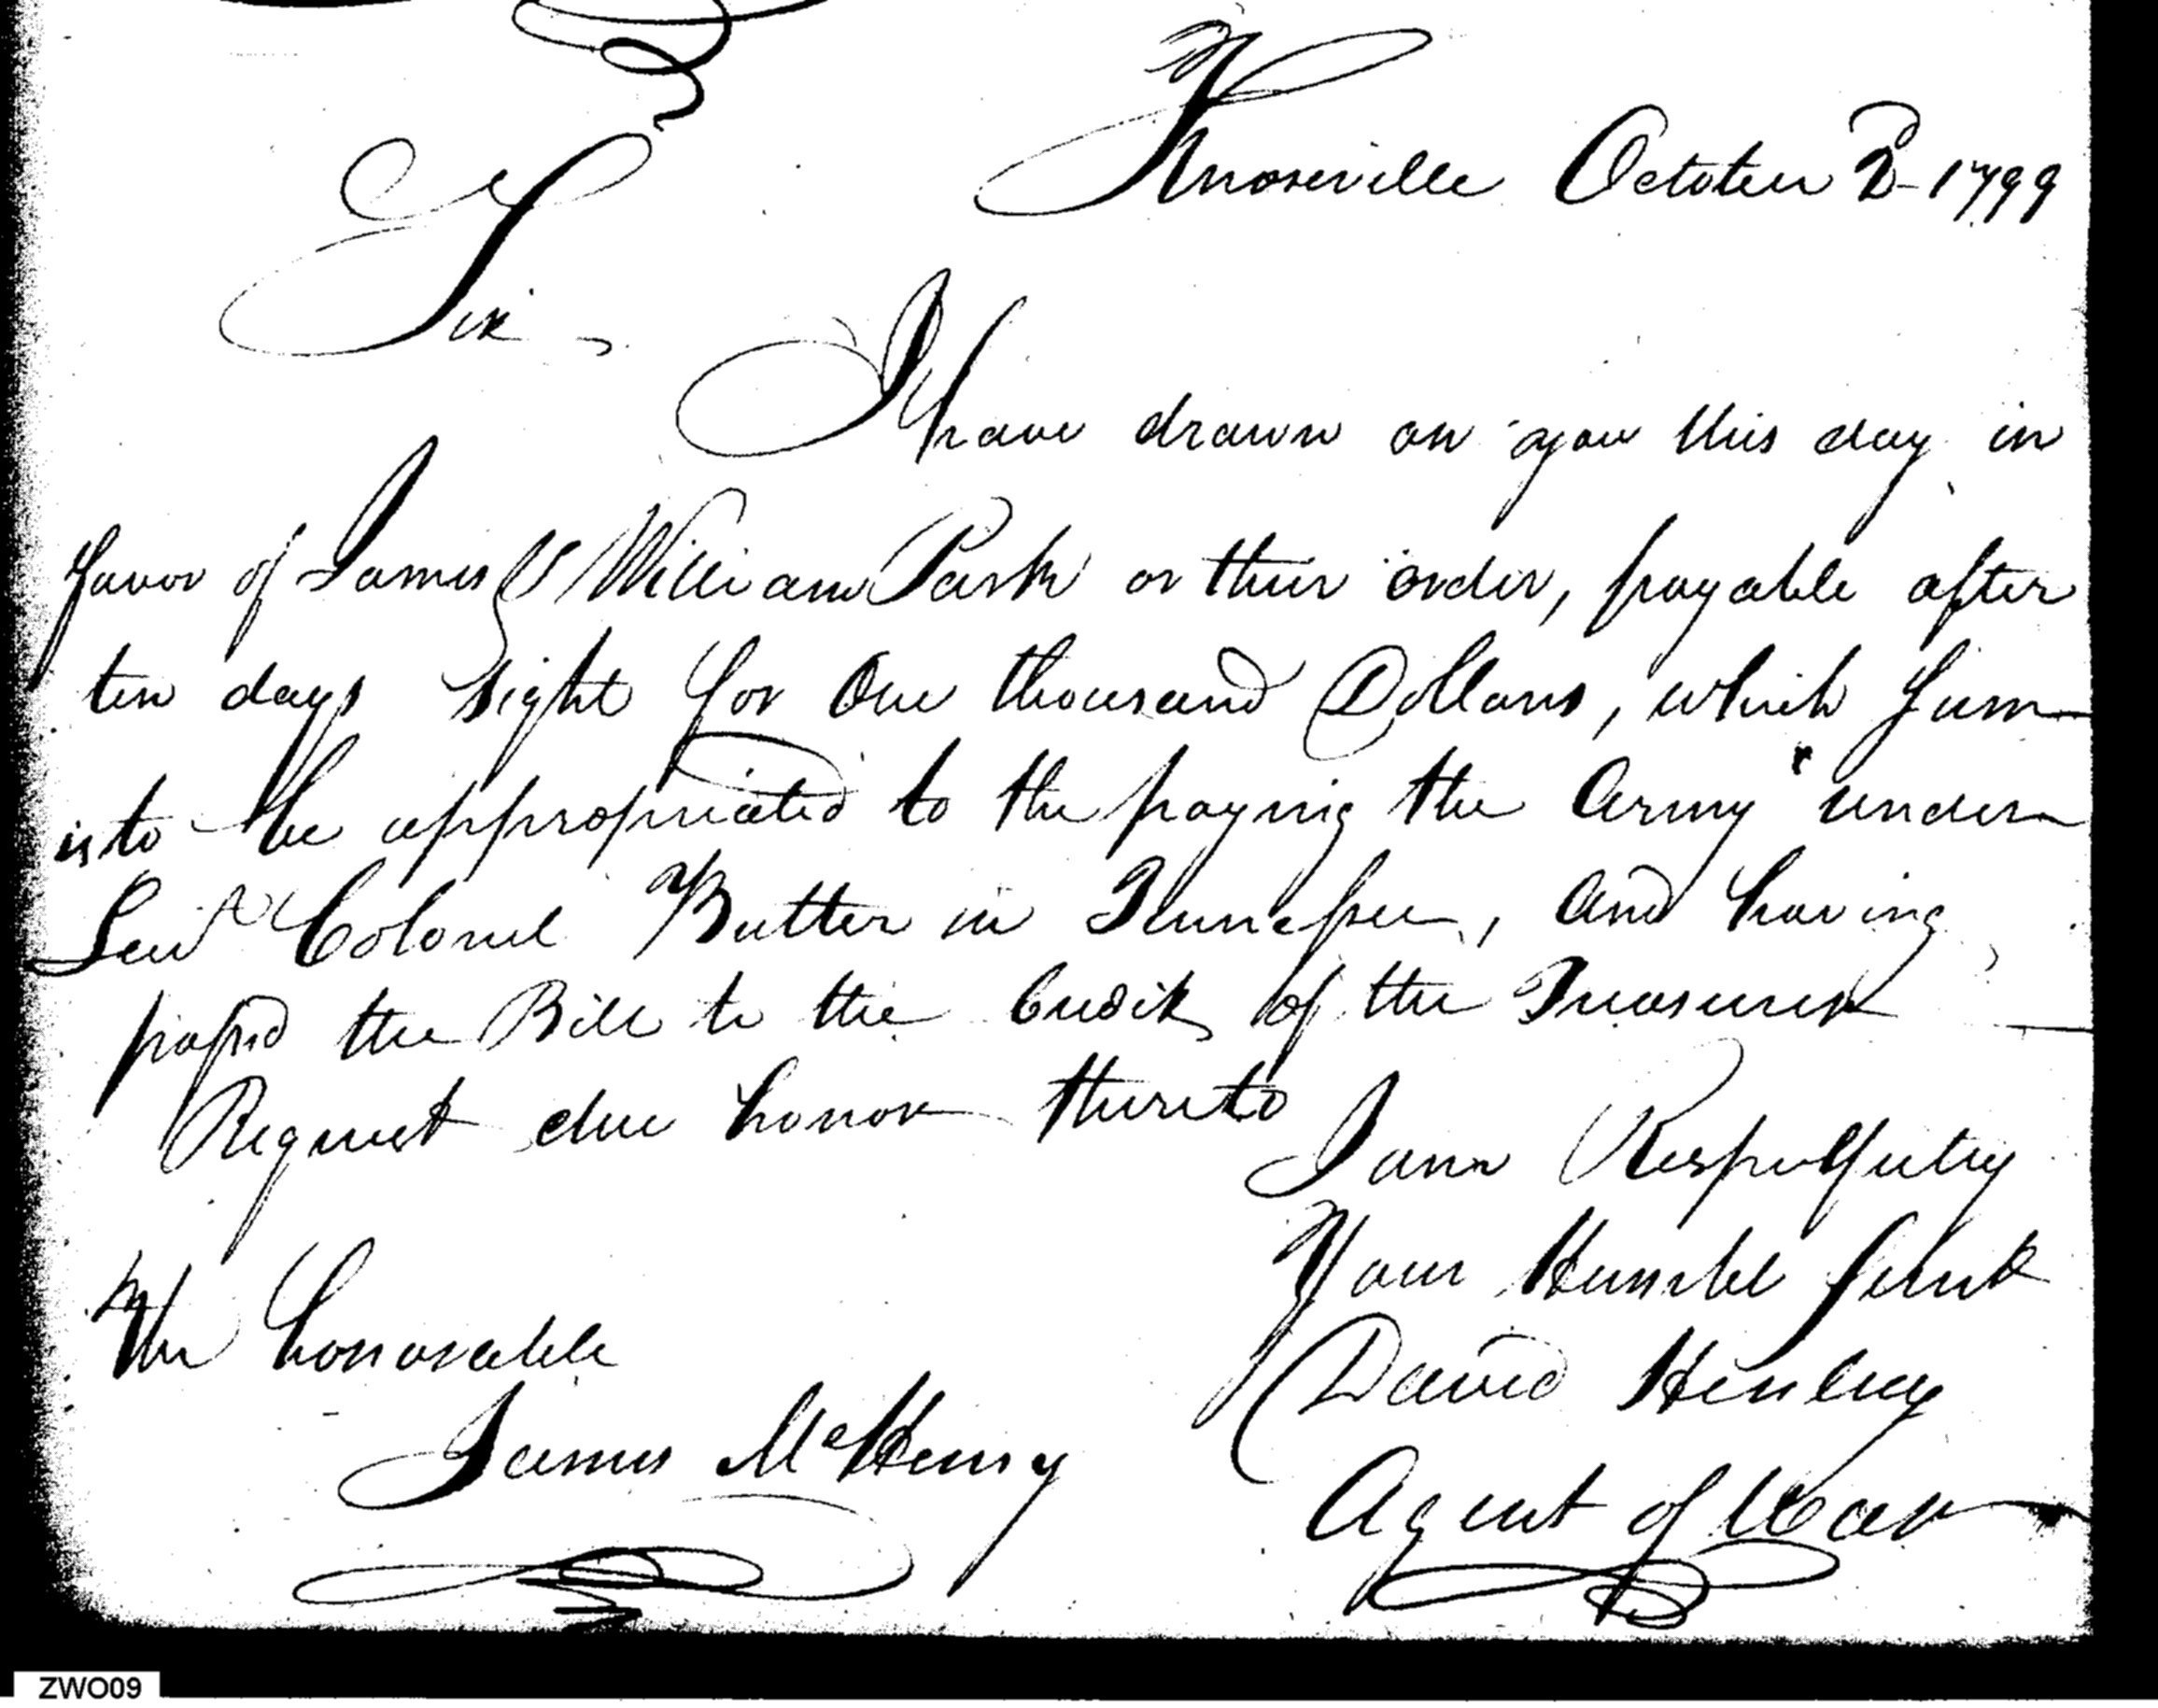 Knoxville October 2d 1799
Sir,
I have drawn on you this day in
favor of James & William Park or their order, payable after
ten days sight for One thousand Dollars, which sum
is to be appropriated to the paying the Army under
Lewt Colonel Butler in Tennessee, and having
passed the Bill to the Credit of the Treasurer
Request due honor thereto
I am Respectfully
Your Humble Servt
David Henley
Agent of War
The honorable
James McHenry
ZWO09